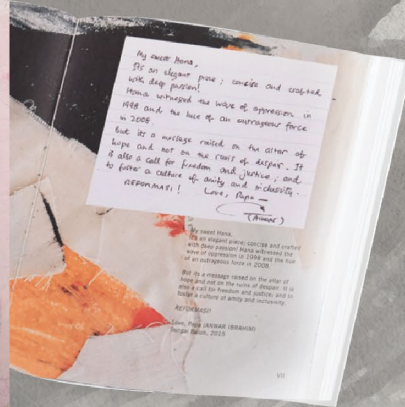 My sweet Hana,
Its an elegant piece; concise and crafted
with deep passion!
Hana witnessed the wave of oppression in
1998 and the hue of an outrageous force
in 2008.
But its a message raised on the altar of
hope and not on the ruins of despair. It
is also a call for freedom and justice; and
to foster a culture of amity and inclusivity.
REFORMASI!
Love, Papa
(Anwar)
My sweet Hana,
It's an elegant piece; concise and crafted
with deep passion! Hana witnessed the
wave of oppression in 1998 and the hue
of an outrageous force in 2008.
But its a message raised on the altar of
hope and not on the ruins of despair. It is
also a call for freedom and justice; and to
foster a culture of amity and inclusivity.
REFORMASI!
Love, Papa (ANWAR IBRAHIM)
Sungai Buloh, 2015
VII